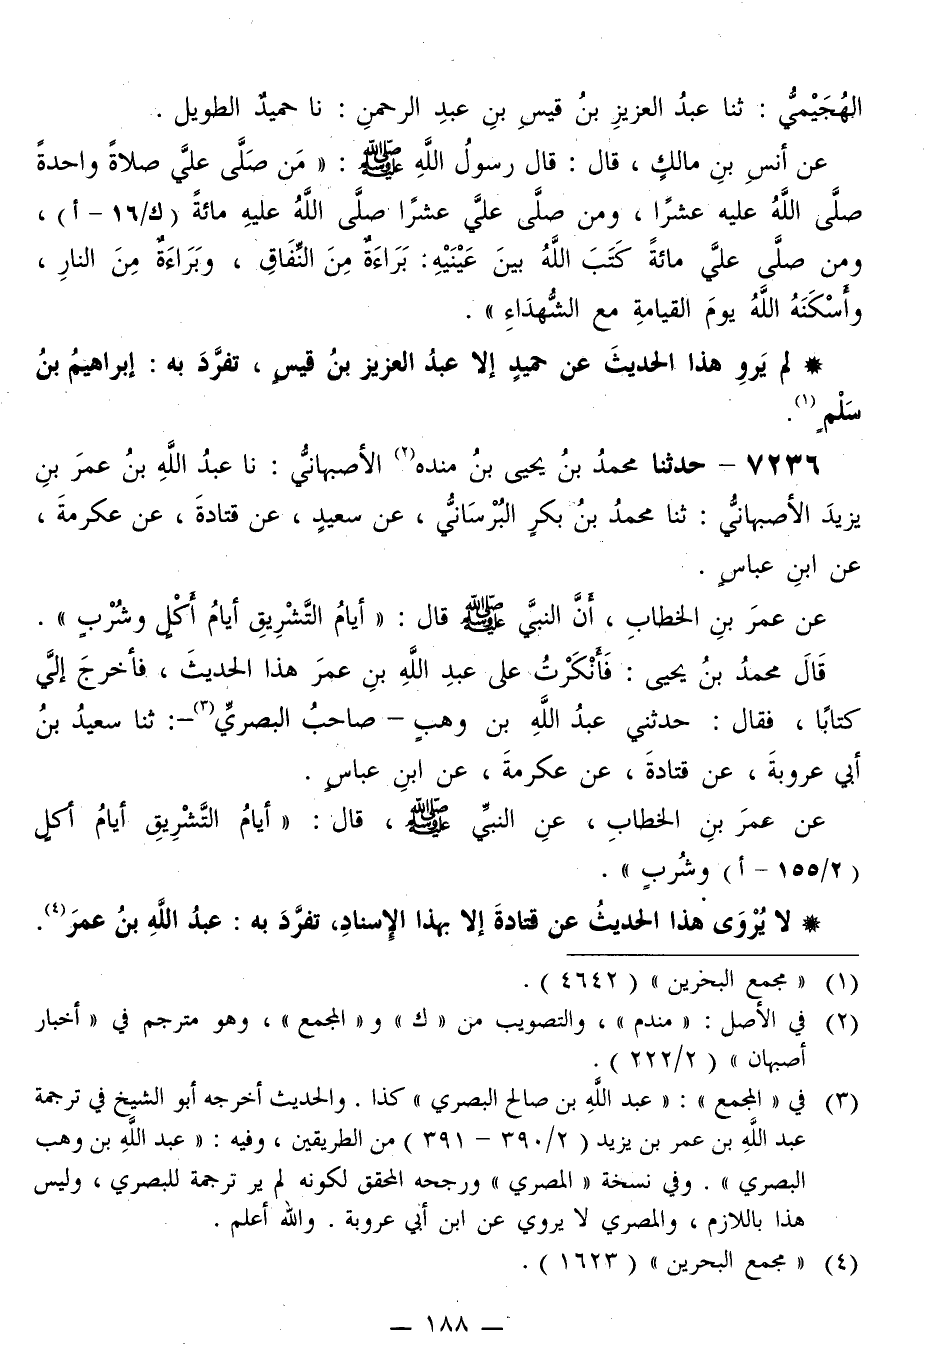 الهُجَيْمِيُّ : ثنا عبدُ العزيزِ بنُ قيسِ بنِ عبدِ الرحمنِ : نا حميدٌ الطويل .
عن أنسِ بنِ مالكٍ ، قال : قال رسولُ اللَّهِ ﷺ : « مَن صَلَّى عليَّ صلاةً واحدةً
صلَّى اللَّهُ عليه عشرًا ، ومن صلَّى عليَّ عشرًا صلَّى اللَّهُ عليهِ مائةً (ك/١٦ - أ) ،
ومن صلَّى عليَّ مائةً كَتَبَ اللَّهُ بينَ عَيْنَيْهِ: بَرَاءَةٌ مِنَ النِّفَاقِ ، وبَرَاءَةٌ مِنَ النارِ ،
وأَسْكَنَهُ اللَّهُ يومَ القيامةِ مع الشُّهدَاءِ » .
* لم يَروِ هذا الحديثَ عن حميدٍ إلا عبدُ العزيز بنُ قيسٍ ، تفرَّدَ به : إبراهيمُ بنُ
سَلْمٍ(١).
٧٢٣٦ - حدثنا محمدُ بنُ يحيى بنُ منده(٢) الأصبهانيُّ : نا عبدُ اللَّهِ بنُ عمرَ بنِ
يزيدَ الأصبهانيُّ : ثنا محمدُ بنُ بكرٍ البُرْسَانيُّ ، عن سعيدٍ ، عن قتادةَ ، عن عكرمةَ ،
عن ابنِ عباسٍ .
عن عمرَ بنِ الخطابِ ، أَنَّ النبيَّ ﷺ قال : « أيامُ التَّشْرِيقِ أيامُ أَكْلٍ وشُرْبٍ » .
قَالَ محمدُ بنُ يحيى : فَأَنْكَرْتُ على عبدِ اللَّهِ بنِ عمرَ هذا الحديثَ ، فأخرجَ إليَّ
كتابًا ، فقال : حدثني عبدُ اللَّهِ بن وهبٍ - صاحبُ البصريِّ(٣)-: ثنا سعيدُ بنُ
أبي عروبةَ ، عن قتادةَ ، عن عكرمةَ ، عن ابنِ عباسٍ .
عن عمرَ بنِ الخطابِ ، عنِ النبيِّ ﷺ ، قال : « أيامُ التَّشْرِيقِ أيامُ أكلٍ
(١٥٥/٢ - أ) وشُربٍ » .
* لا يُرْوَى هذا الحديثُ عن قتادةَ إلا بهذا الإسنادِ، تفرَّدَ به : عبدُ اللَّهِ بنُ عمرَ(٤).
(١) « مجمع البحرين » ( ٤٦٤٢ ) .
(٢) في الأصل : « مندم » ، والتصويب من « ك » و « المجمع » ، وهو مترجم في « أخبار
أصبهان » ( ٢٢٢/٢ ) .
(٣) في « المجمع » : « عبد اللَّهِ بن صالح البصري » كذا . والحديث أخرجه أبو الشيخ في ترجمة
عبد اللَّهِ بن عمر بن يزيد ( ٣٩٠/٢ - ٣٩١ ) من الطريقين ، وفيه : « عبد اللَّهِ بن وهب
البصري » . وفي نسخة « المصري » ورجحه المحقق لكونه لم ير ترجمة للبصري ، وليس
هذا باللازم ، والمصري لا يروي عن ابن أبي عروبة . والله أعلم .
(٤) « مجمع البحرين » ( ١٦٢٣ ) .
— ١٨٨ —